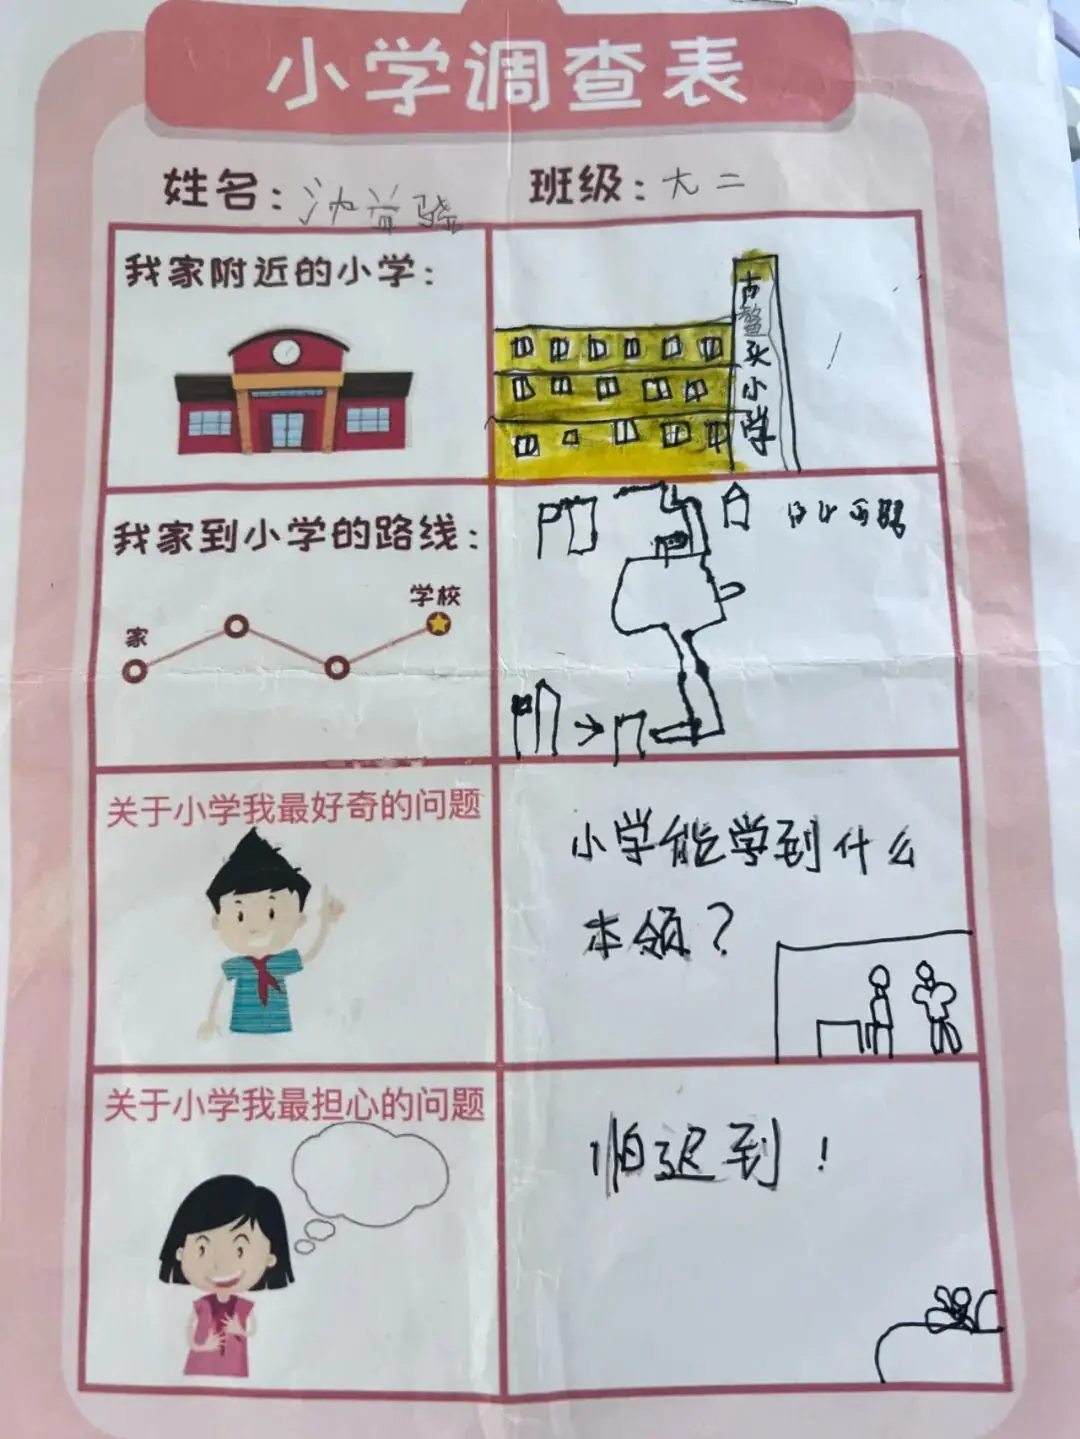 小学调查表
姓名: 沈益骁 班级: 大二
我家附近的小学:
古鳌头小学
我家到小学的路线:
家
学校
关于小学我最好奇的问题
小学能学到什么
本领?
关于小学我最担心的问题
怕迟到!